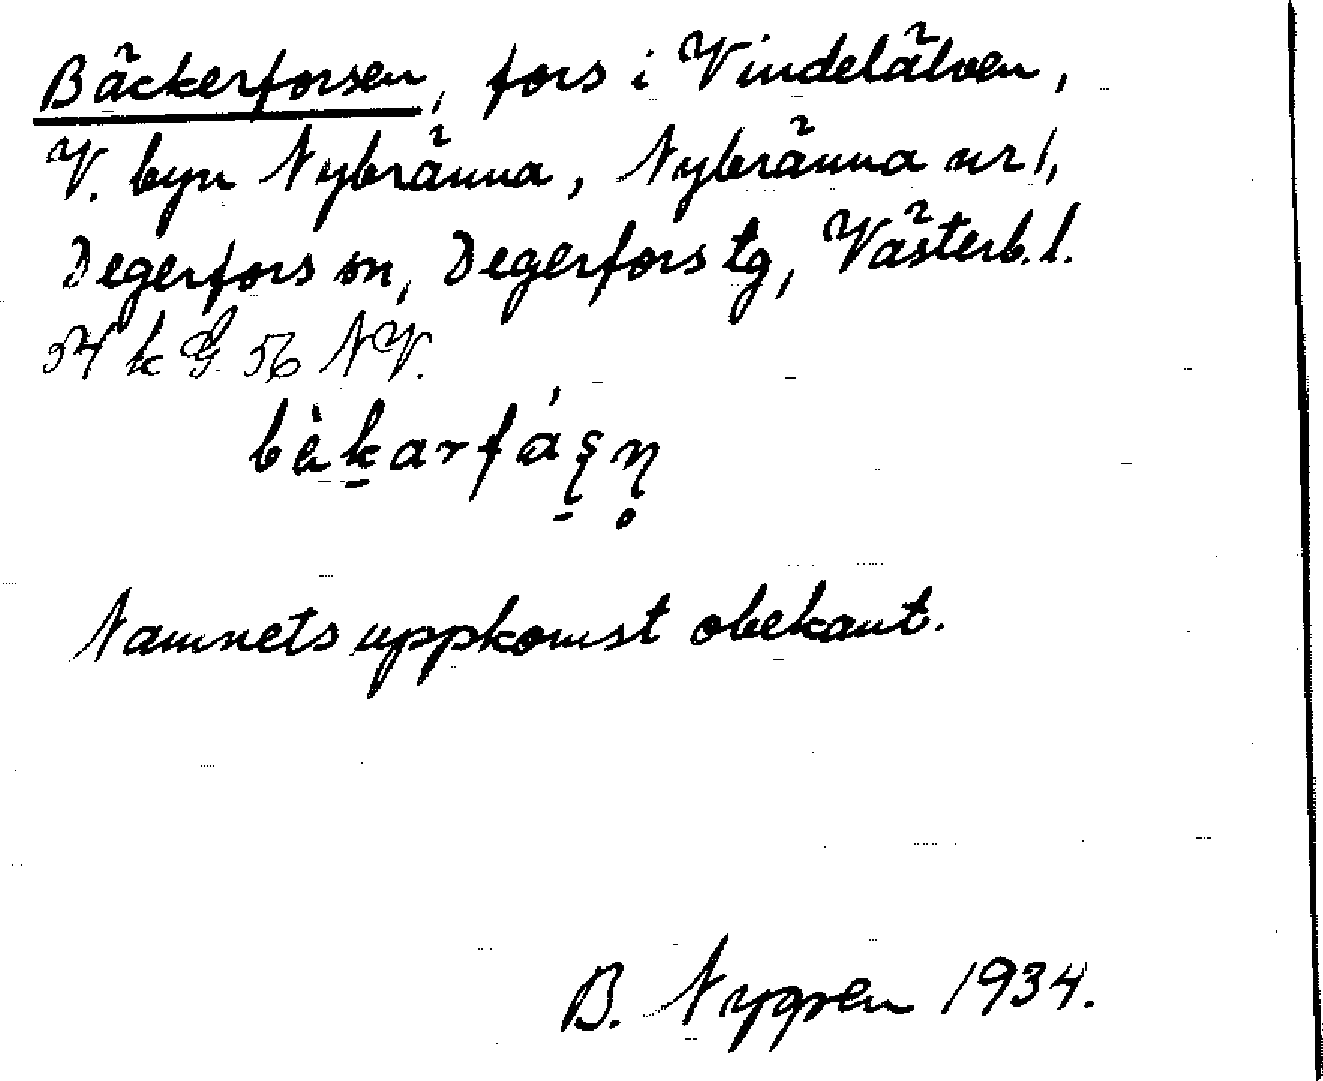 Bäckerforsen, fors i Vindelälven,
V. byn Nybränna, Nybränna nr 1,
Degerfors sn, Degerfors tg, Västerb. l.
54 k G 56 NV.
bèk̠arfáʂ̠n̥
Namnets uppkomst obekant.
B. Nygren 1934.